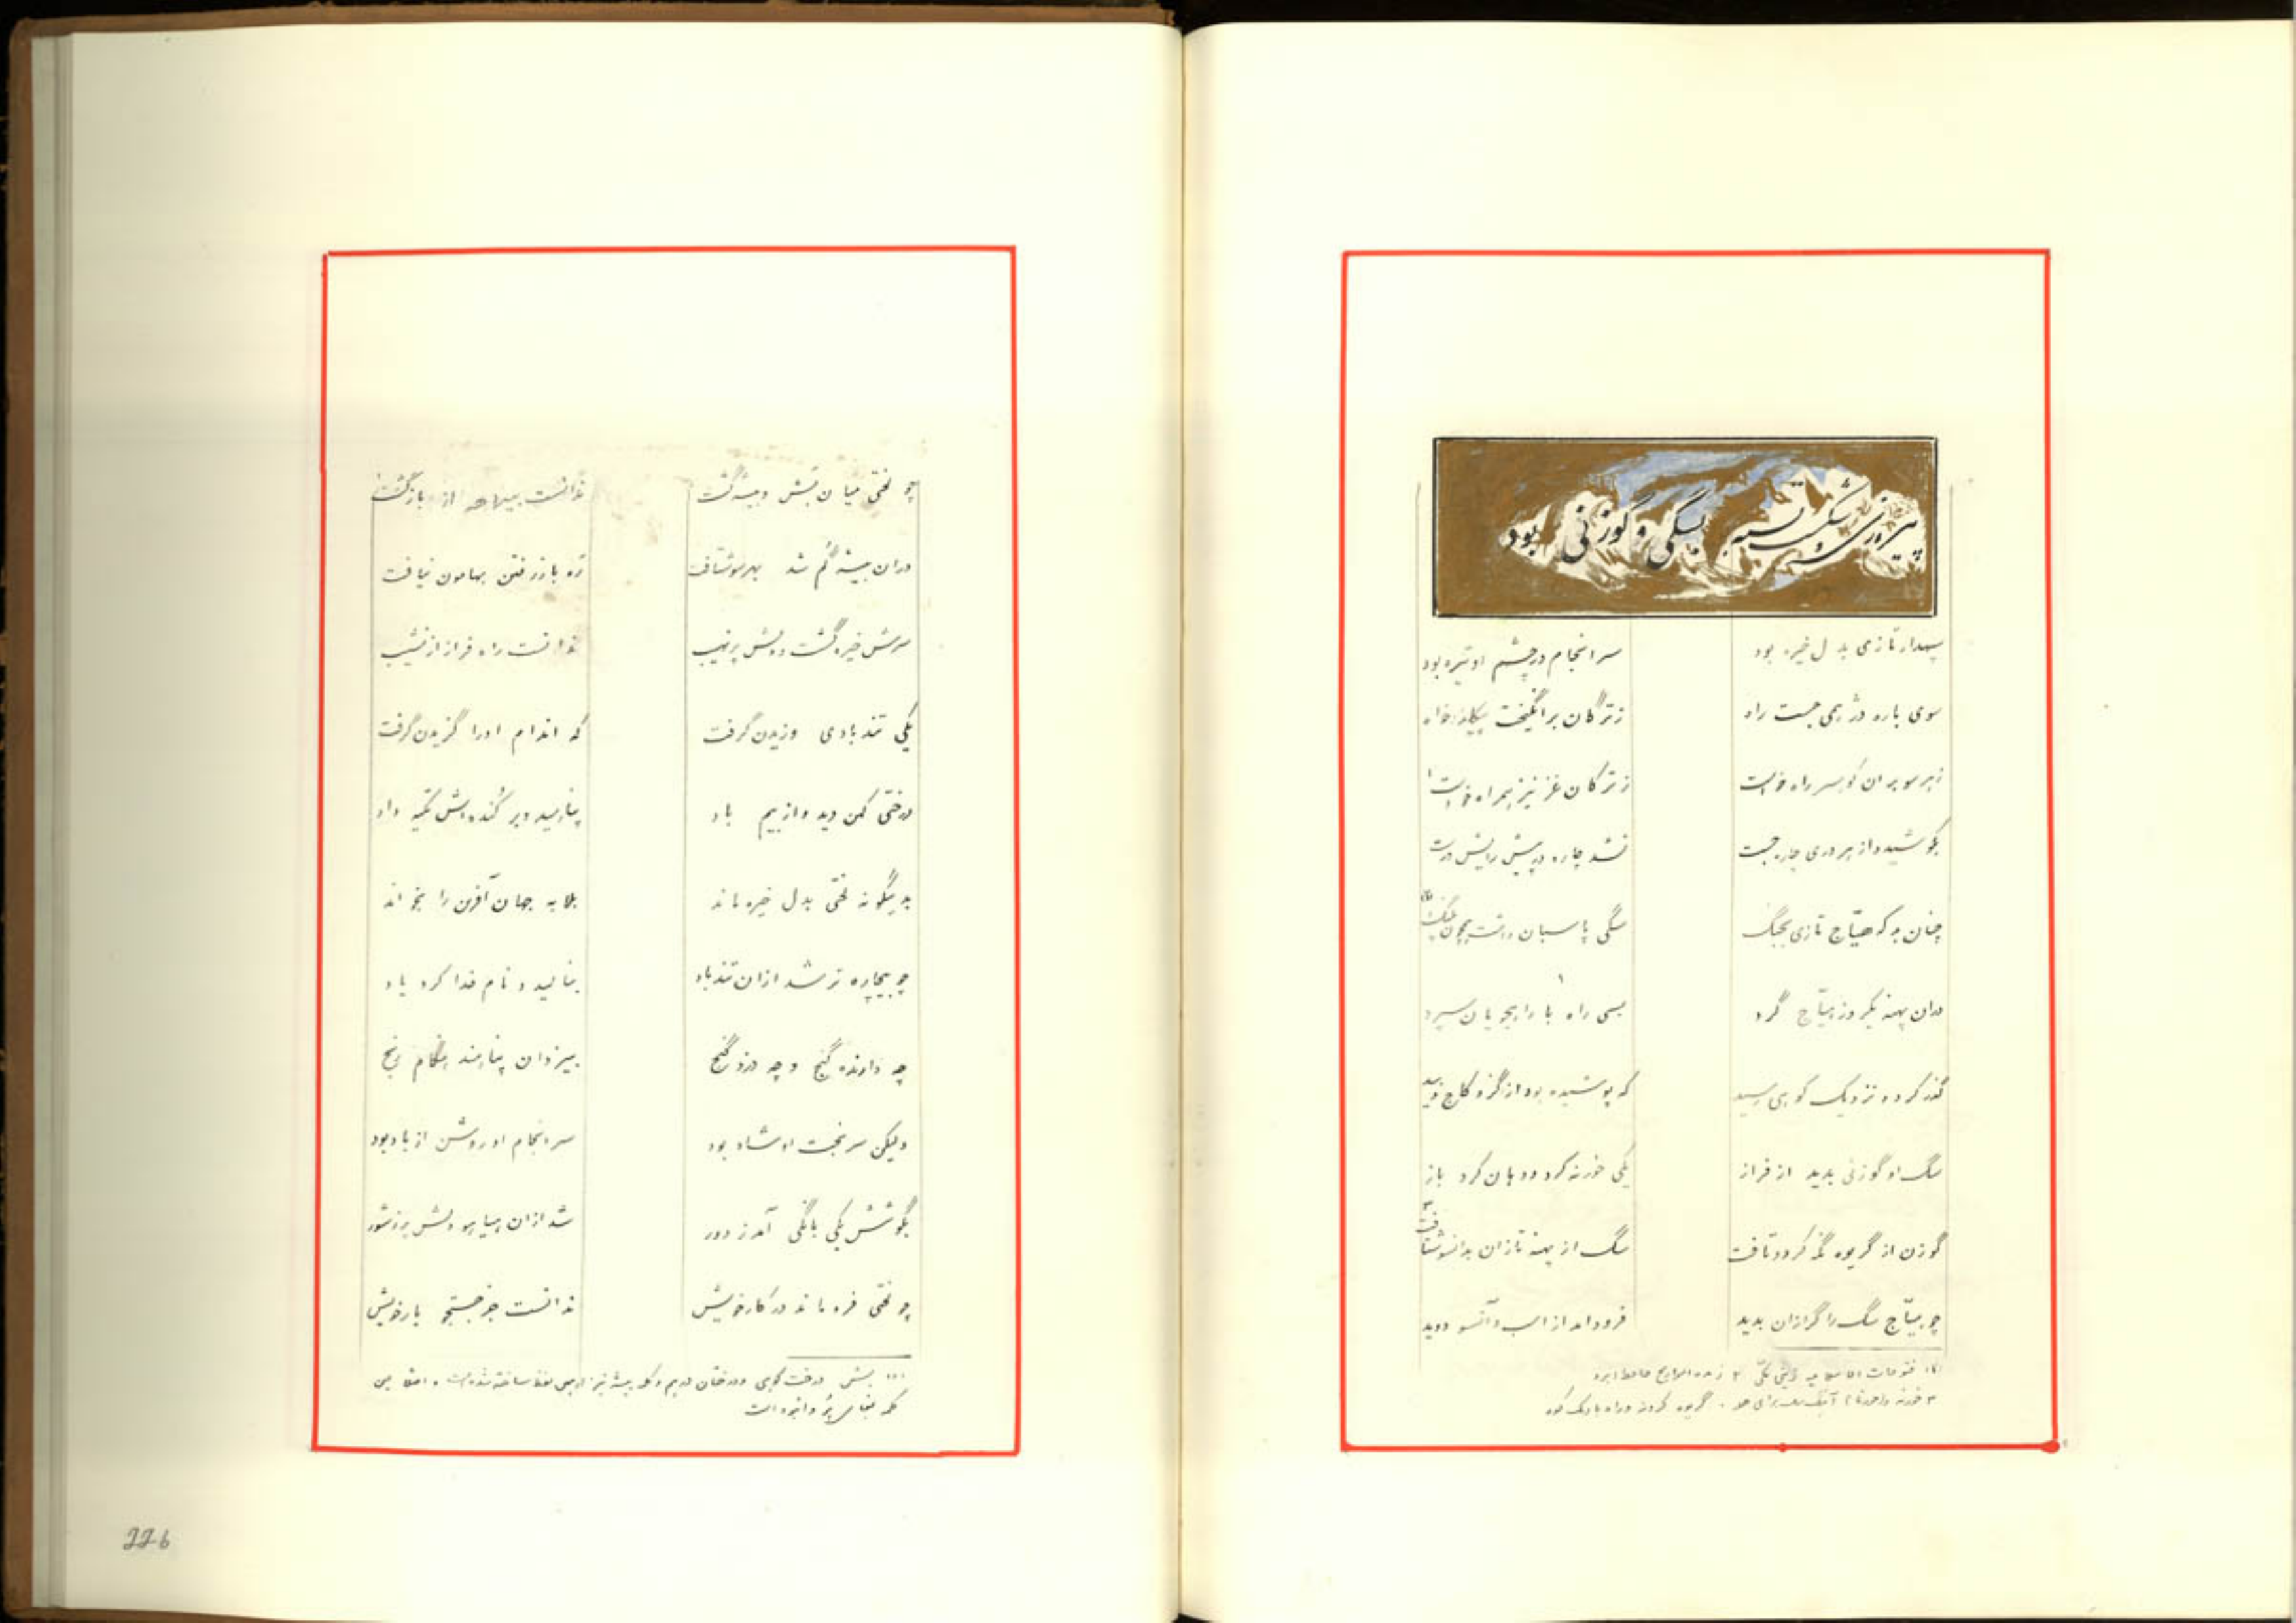 پیروزی و شکست بسته بسگی و گوزنی بود
سپهدار تازی بدل خیره بود سرانجام در چشم او تیره بود
سوی باره دژ همی جست راه ز ترکان برانگیخت پیکارخواه
ز هر سو بران کوهسر راه خواست ز ترکان غز نیز همراه خواست
بکوشید و از هر دری چاره جست نشد چاره در پیش رایش درست
چنان بد که هیّاج تازی بجنگ سگی پاسبان داشت همچون پلنگ
دران پهنه یکروز هیّاج گرد بسی راه با راهجویان سپرد
گذر کرد و نزدیک کوهی رسید که پوشیده بود از گز و کاج و بید
سگ او گوزنی بدید از فراز یکی خرنه کرد و دهان کرد باز
گوزن از گریوه گذر کرد و تافت سگ از پهنه تازان بدانسو شتافت
چو هیّاج سگ را گرازان بدید فرود آمد از اسب و آنسو دوید
۱) فتوحات اسلامیه زینی مکی ۲ زبده التواریخ حافظ ابرو
چو لختی میان بنش و بیشه گشت ندانست بیراهه از بازگشت
دران بیشه گم شد بهر سو شتافت ره باز رفتن بهامون نیافت
سرش خیره گشت و دلش پر نهیب ندانست راه فراز از نشیب
یکی تند بادی وزیدن گرفت که اندام او را گزیدن گرفت
درختی کهن دید و از بیم باد پناهید و بر کنده‌اش تکیه داد
بدینگونه لختی بدل خیره ماند بلابه جهان آفرین را بخواند
چو بیچاره‌تر شد ازان تندباد بنالید و نام خدا کرد یاد
چه دارنده گنج و چه دزد گنج بیزدان پناهند هنگام رنج
ولیکن سر بخت او شاد بود سرانجام او روشن از باد بود
بگوشش یکی بانگی آمد ز دور شد ازان هیاهو دلش پر ز شور
چو لختی فرو ماند در کار خویش ندانست جز جستجو یار خویش
226